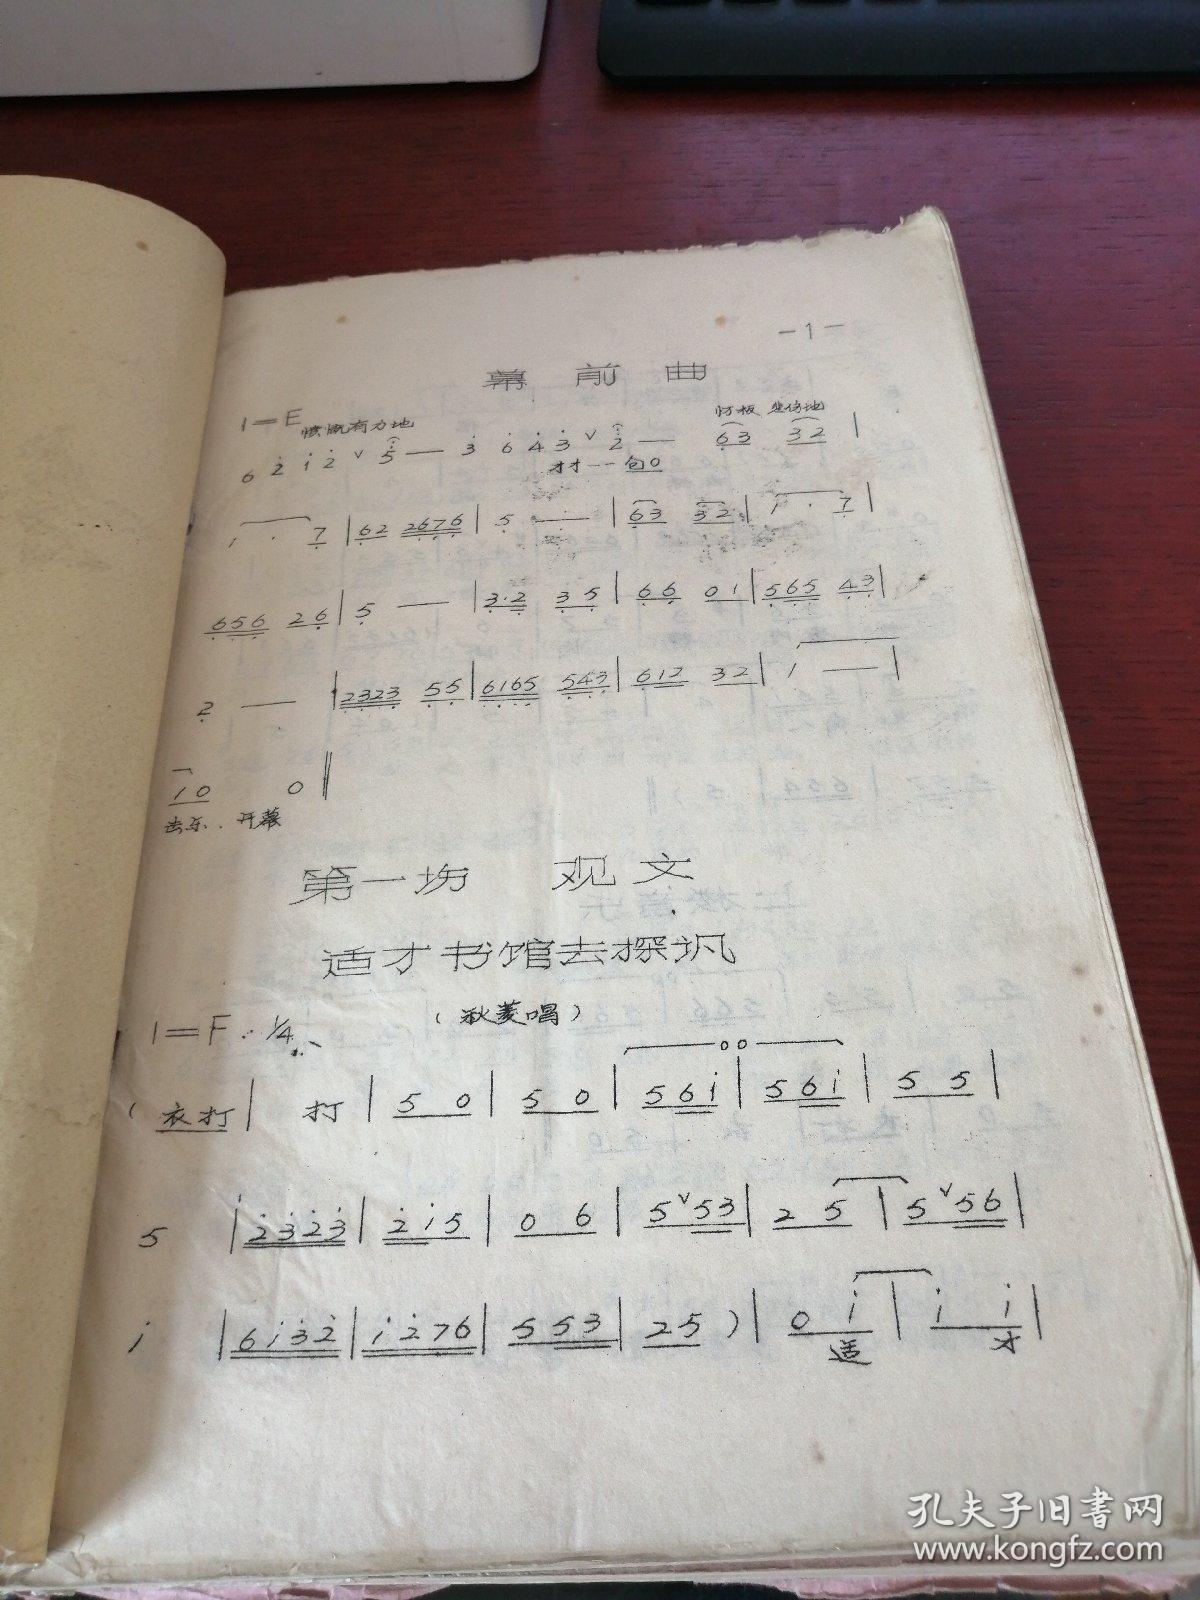 —1—
幕前曲
1=F 愤慨有力地 忉板 悲伤地
6 2̇ 1̇ 2̇ ∨ 5̇ — 3̇ 6 4̇ 3̇ ∨ 2̇ — 6̣3 32 |
才才——仓0
1 · 7̣ | 6̣2 26̣7̣6̣ | 5̣ — | 6̣3 32 | 1 · 7̣ |
6̣5̣6̣ 26̣ | 5̣ — | 3̣·2̣ 3̣5̣ | 6̣6̣ 01 | 5̣6̣5̣ 4̣3̣ |
2̣ — | 2̣3̣2̣3̣ 5̣5̣ | 6̣16̣5̣ 5̣4̣3̣ | 6̣12 32 | 1 — |
10 0 ‖
击乐. 开幕
第一场 观文
适才书馆去探讽
1=F 1/4
(秋菱唱)
(衣打 | 打 | 5 0 | 5 0 | 561̇ | 561̇ | 5 5 |
5 | 2̇3̇2̇3̇ | 2̇1̇5 | 0 6 | 5∨53 | 2 5 | 5∨56 |
1̇ | 61̇3̇2̇ | 1̇2̇76 | 553 | 25 ) | 0 1̇ | 1̇ 1̇ |
适 才
孔夫子旧书网
www.kongfz.com